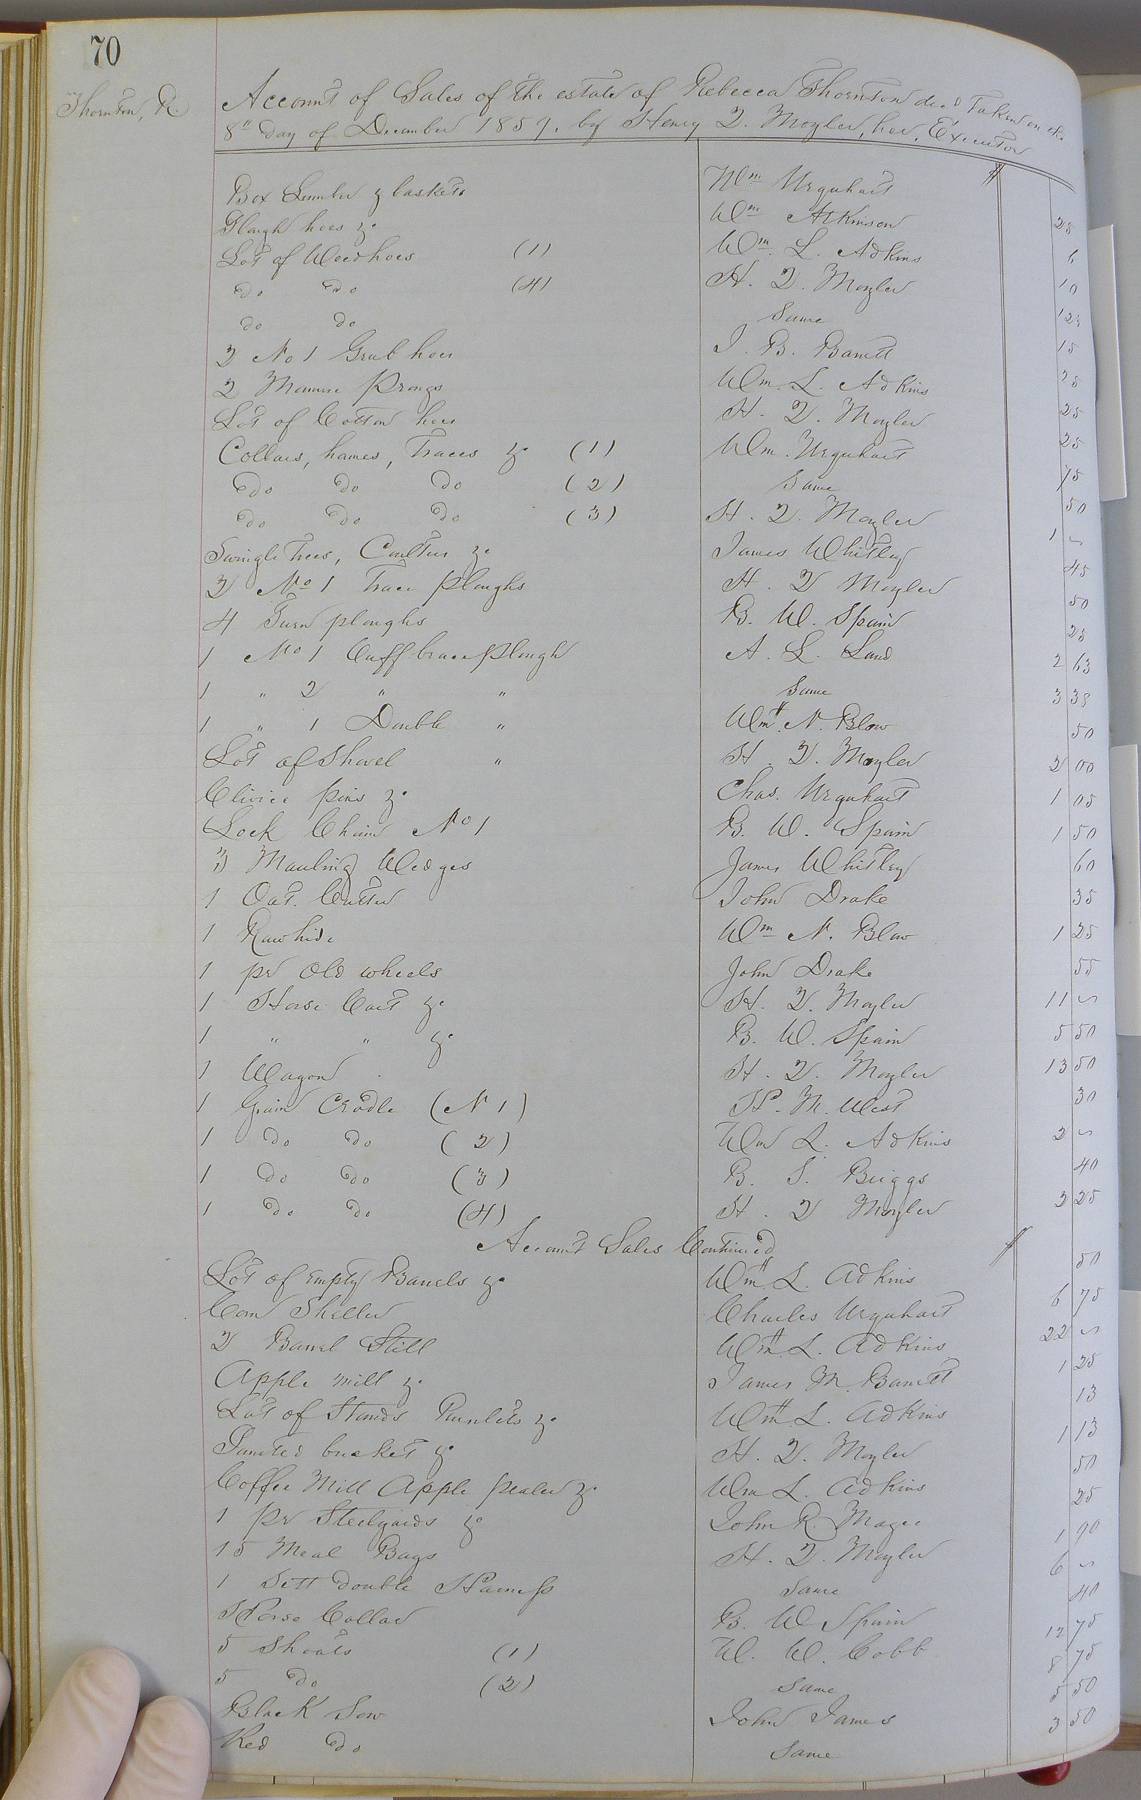 70
Thornton, R.
Account of Sales of the estate of Rebecca Thornton decd Taken on the
8th day of December 1859, by Henry T. Moyler, her, Executor
Box Lumber & baskets Wm Urquhart 25
Plough hoes &c Wm Atkinson 6
Lot of Weedhoes (1) Wm. L. Adkins 10
do do (4) H. T. Moyler 12½
do do Same 15
2 No 1 Grub hoes J. B. Barrett 25
2 Manure Prongs Wm. L. Adkins 25
Lot of Cotton hoes H. T. Moyler 25
Collars, hames, Traces &c (1) Wm. Urquhart 75
do do do (2) Same 50
do do do (3) H. T. Moyler 1 ~
Swingle Trees, Coulters &c James Whitley 45
2 No 1 Trace Ploughs H. T Moyler 50
4 Turn ploughs B. W. Spain 25
1 No 1 Cuff brace Plough A. L. Land 2 63
1 " 2 " " Same 3 38
1 " 1 Double " Wm N. Blow 50
Lot of Shovel " H. T. Moyler 2 00
Clivice pins &c Chas. Urquhart 1 05
Lock Chain No 1 B. W. Spain 1 50
3 Mauling Wedges James Whitley 60
1 Oat. Cutter John Drake 35
1 Rawhide Wm N. Blow 1 25
1 pr old wheels John Drake 55
1 Horse Cart &c H. T. Moyler 11 ~
1 " " &c B. W. Spain 5 50
1 Wagon H. T. Moyler 13 50
1 Grain Cradle (N 1) H. M. West 30
1 do do (2) Wm L. Adkins 2 ~
1 do do (3) B. S. Briggs 40
1 do do (4) H. T Moyler 3 25
Account Sales Continued $
Lot of Empty Barrels &c Wm L. Adkins 50
Corn Sheller Charles Urquhart 6 75
2 Barrel Still Wm L. Adkins 22 ~
Apple mill &c James M. Barrett 1 25
Lot of Stands Runlets &c Wm L. Adkins 13
Painted bucket &c H. T. Moyler 1 13
Coffee Mill Apple pealer &c Wm L. Adkins 50
1 Pr Steelyards &c John R. Magee 25
15 Meal Bags H. T. Moyler 1 90
1 Sett double Harness Same 6 ~
Horse Collar B. W Spain 40
5 Shoats (1) W. W. Cobb 12 75
5 do (2) Same 8 75
Black Sow John James 5 50
Red do Same 3 50